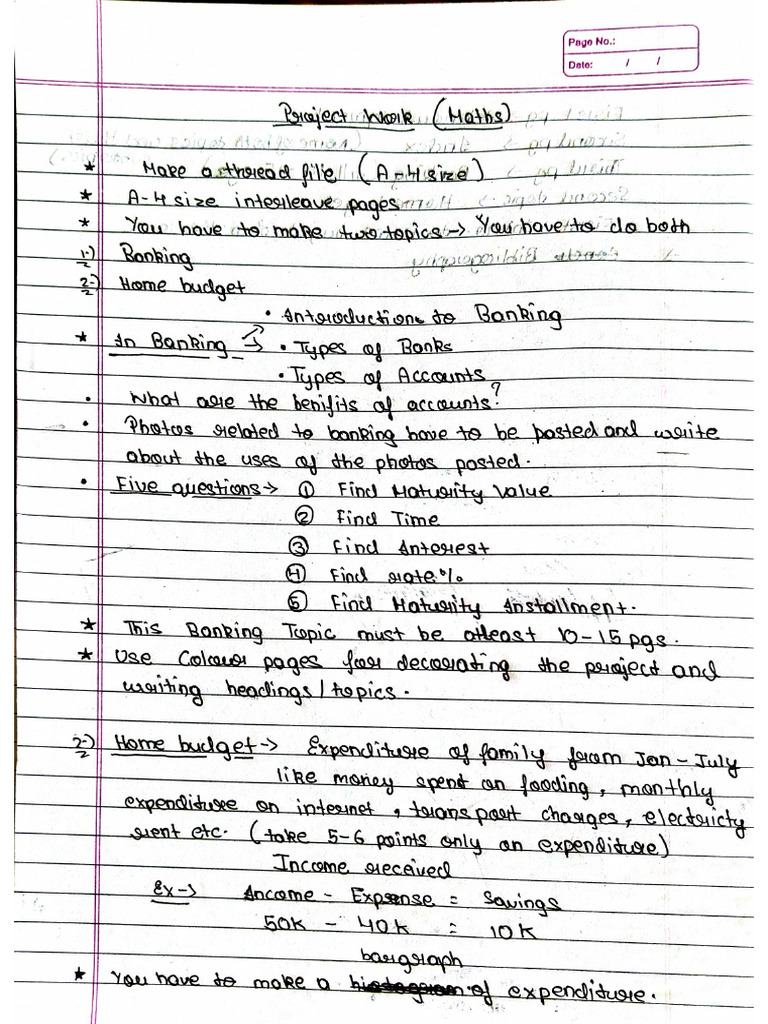 Page No.:
Date: / /
Project Work (Maths)
* Make a thread file (A-4 size)
* A-4 size interleave pages
* You have to make two topics → You have to do both
1-) Banking
2-) Home budget
• Introduction to Banking
* In Banking → • Types of Banks
• Types of Accounts
• What are the benifits of accounts?
• Photos related to banking have to be pasted and write
about the uses of the photos pasted.
• Five questions → ① Find Maturity Value
② Find Time
③ Find Interest
④ Find rate%
⑤ Find Maturity Installment.
* This Banking Topic must be atleast 10-15 pgs.
* Use Colour pages for decorating the project and
writing headings/topics.
2-) Home budget → Expenditure of family from Jan - July
like money spent on fooding, monthly
expenditure on internet, transport charges, electricty
rent etc. (take 5-6 points only on expenditure)
Income received
Ex → Income - Expense = Savings
50K - 40K = 10K
bargraph
* You have to make a of expenditure.